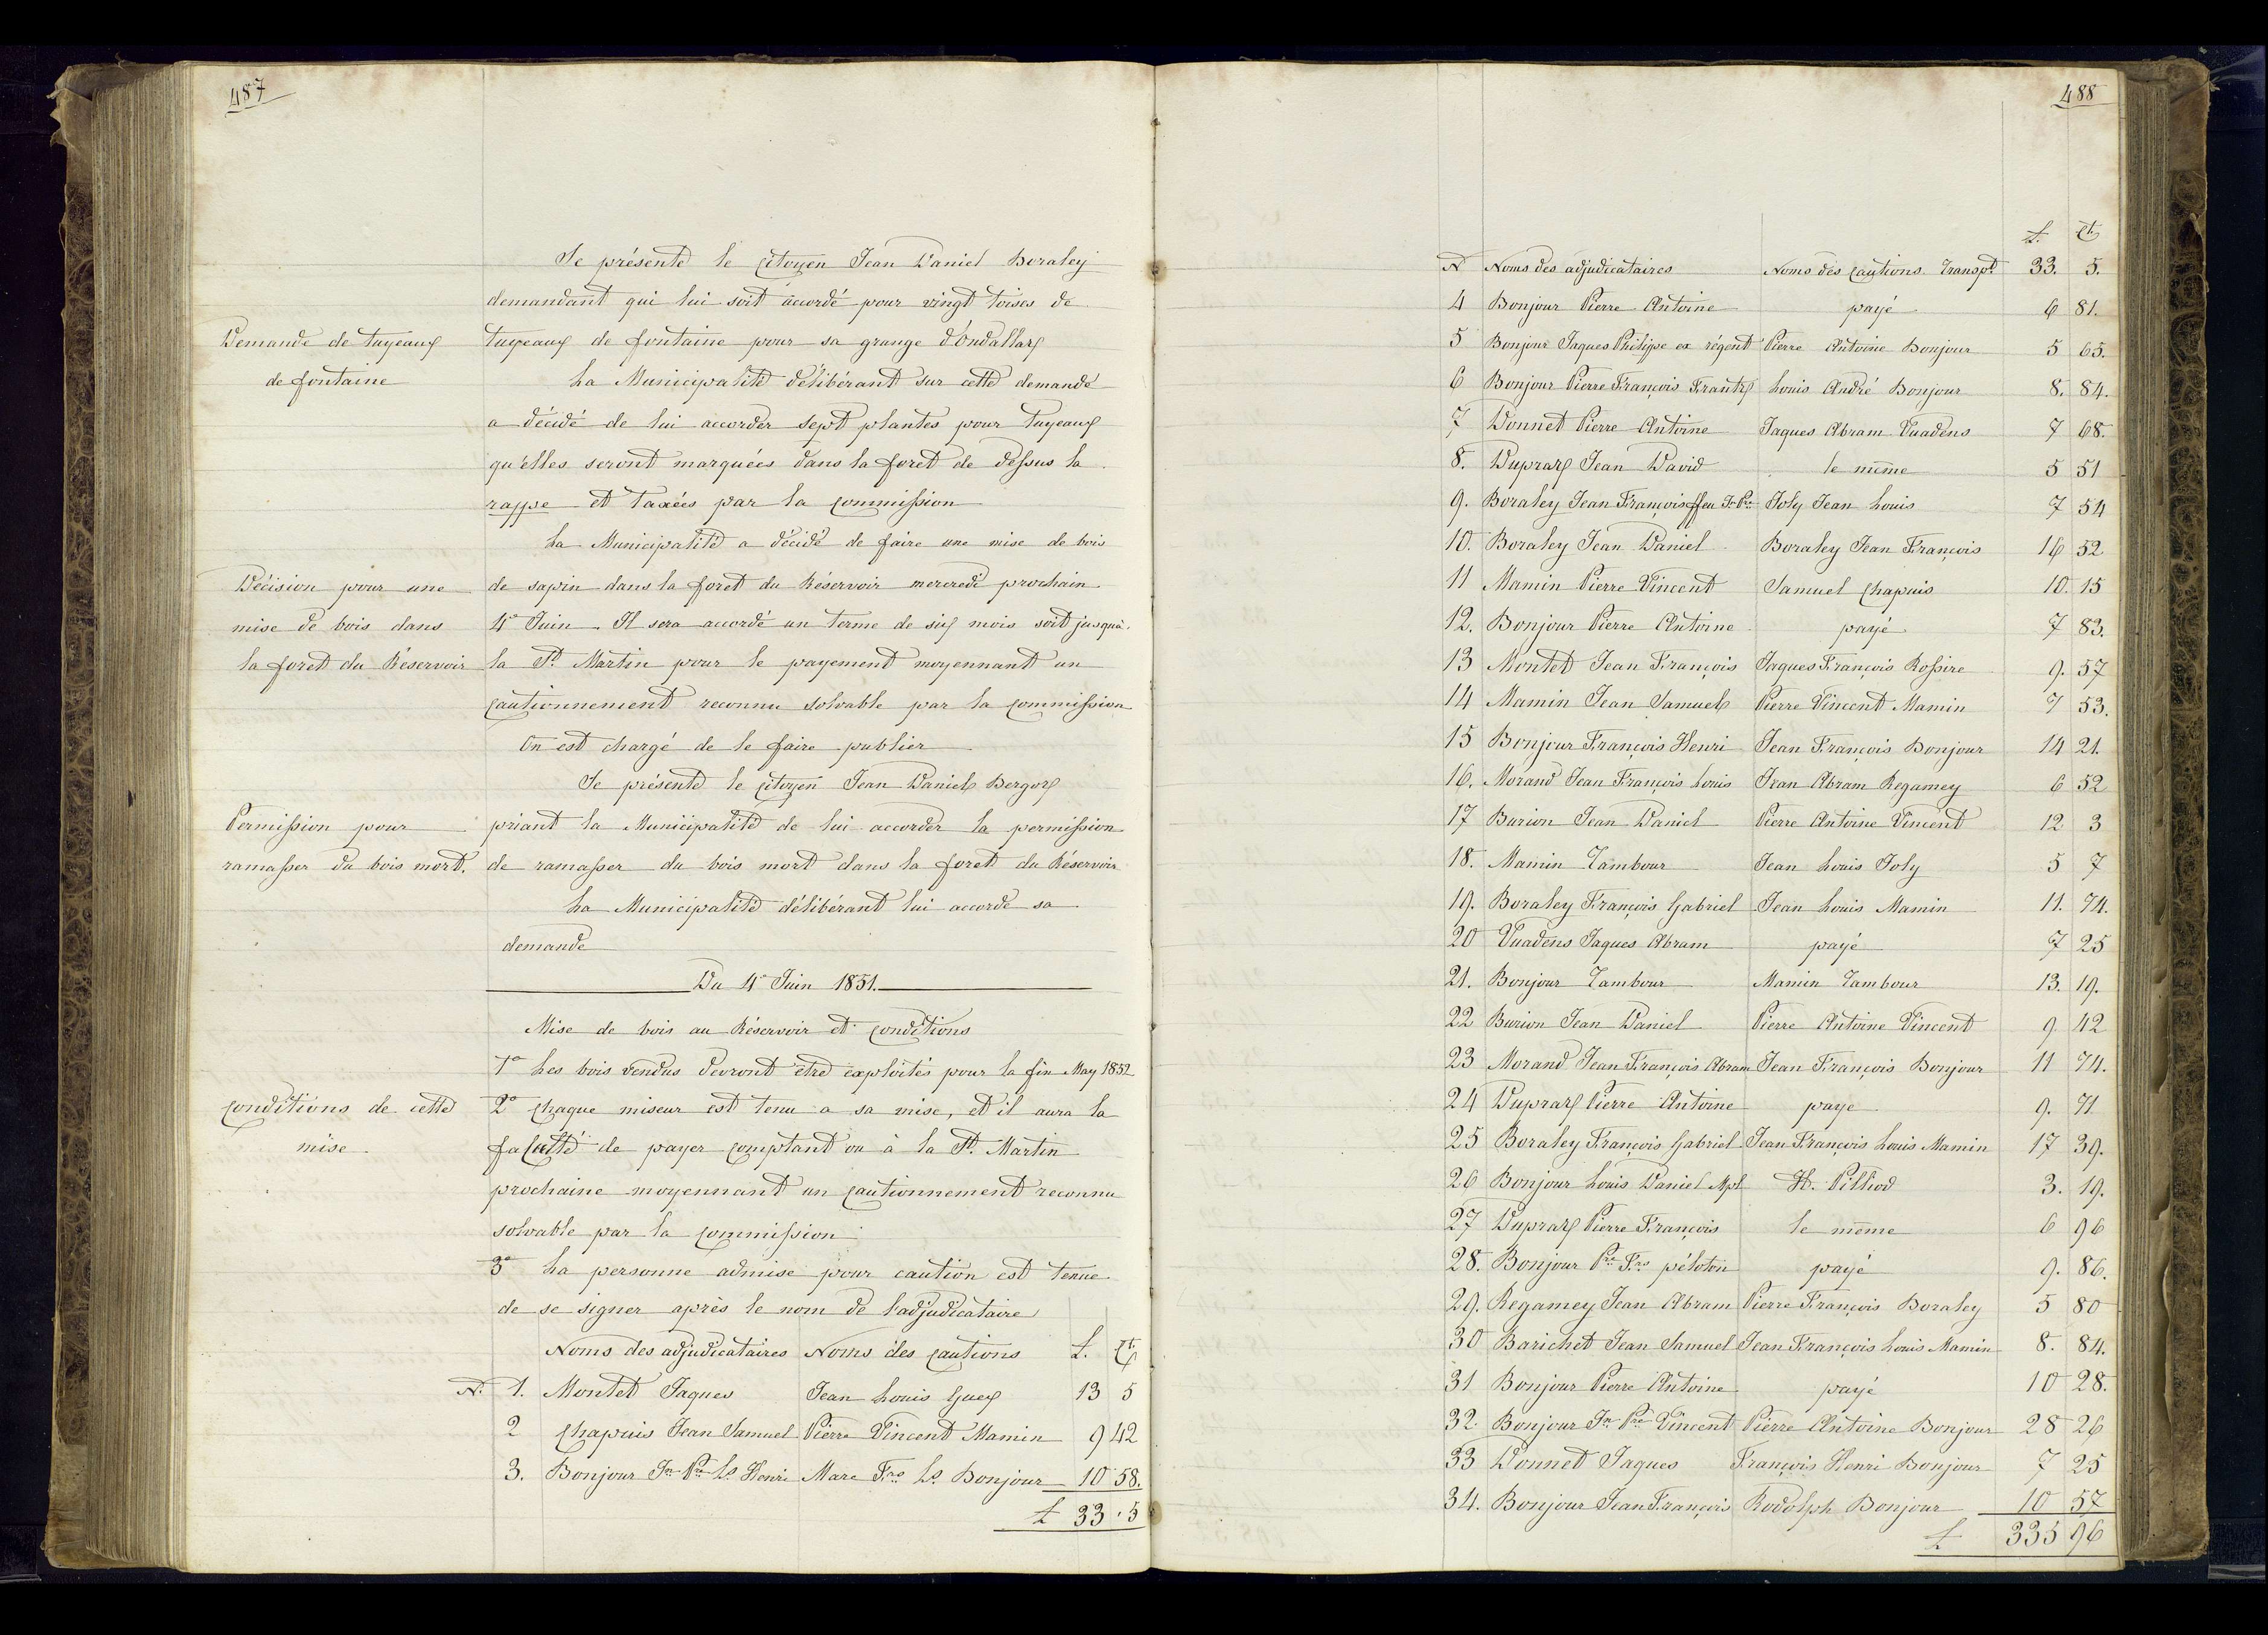 487
Se présente le citoyen Jean Daniel Boraley
demandant qui lui soit accordé pour vingt toises de
Demande de tuyeaux
tuyeaux de fontaine pour sa grange d'Ondallaz
de fontaine
La Municipalité délibérant sur cette demande
a décidé de lui accorder sept plantes pour tuyeaux
qu'elles seront marquées dans la foret de dessus la
rappe et taxées par la commission
La Municipalité a décidé de faire une mise de bois
Décision pour une
de sapin dans la foret du Réservoir mercredi prochain
mise de bois dans
4e Juin. Il sera accordé un terme de six mois soit jusquà
la foret du Réservoir
la St Martin pour le payement moyennant un
cautionnement reconnu solvable par la commission
On est chargé de le faire publier
Se présente le citoyen Jean Daniel Bergoz
Permission pour
priant la Municipalité de lui accorder la permission
ramasser du bois mort.
de ramasser du bois mort dans la foret du Réservoir
La Municipalité délibérant lui accorde sa
demande
Du 4e Juin 1851.
Mise de bois au Réservoir et conditions
1o Les bois vendus devront être exploités pour la fin May 1852
conditions de cette
2o Chaque miseur est tenu a sa mise, et il aura la
mise
faculté de payer comptant ou à la St. Martin
prochaine moyennant un cautionnement reconnu
solvable par la commission
3o La personne admise pour caution est tenue
de se signer après le nom de l'adjudicataire
Noms des adjudicataires Noms des cautions L. Ct.
N. 1. Montet Jaques Jean Louis Guex 13 5
2 Chapuis Jean Samuel Pierre Vincent Mamin 9 42
3. Bonjour Jn Pre Ls Henri Marc Frs Ls Bonjour 10 58.
L 33.5
488
L. Ct.
N Noms des adjudicataires Noms des cautions Transpt. 33. 5.
4 Bonjour Pierre Antoine payé 6 81.
5 Bonjour Jaques Philippe ex régent Pierre Antoine Bonjour 5 65.
6 Bonjour Pierre François Frantz Louis André Bonjour 8. 84.
7 Donnet Pierre Antoine Jaques Abram Vuadens 7 68.
8. Dupraz Jean David le même 5 51
9. Boraley Jean François ffeu Jn Pre Joly Jean Louis 7 54
10. Boraley Jean Daniel Boraley Jean François 16 52
11 Mamin Pierre Vincent Samuel Chapuis 10. 15
12. Bonjour Pierre Antoine payé 7 83.
13 Montet Jean François Jaques François Rossire 9. 57
14 Mamin Jean Samuel Pierre Vincent Mamin 7 53.
15 Bonjour François Henri Jean François Bonjour 14 21.
16. Morand Jean François Louis Jean Abram Regamey 6 52
17 Burion Jean Daniel Pierre Antoine Vincent 12 3
18. Mamin Tambour Jean Louis Joly 5 7
19. Boraley François Gabriel Jean Louis Mamin 11. 74.
20 Vuadens Jaques Abram payé 7 25
21. Bonjour Tambour Mamin Tambour 13. 19.
22 Burion Jean Daniel Pierre Antoine Vincent 9 42
23 Morand Jean François Abram Jean François Bonjour 11 74.
24 Dupraz Pierre Antoine paye 9. 71
25 Boraley François Gabriel Jean François Louis Mamin 17 39.
26 Bonjour Louis Daniel Mpl H. Pilliod 3. 19.
27 Dupraz Pierre François le même 6 96
28. Bonjour Pre Frs péloton payé 9. 86.
29. Regamey Jean Abram Pierre François Boraley 5 80
30 Barichet Jean Samuel Jean François Louis Mamin 8. 84.
31 Bonjour Pierre Antoine payé 10 28.
32. Bonjour Jn Pre Vincent Pierre Antoine Bonjour 28 26
33 Donnet Jaques François Henri Bonjour 7 25
34. Bonjour Jean François Rodolph Bonjour 10 57
L 335 96